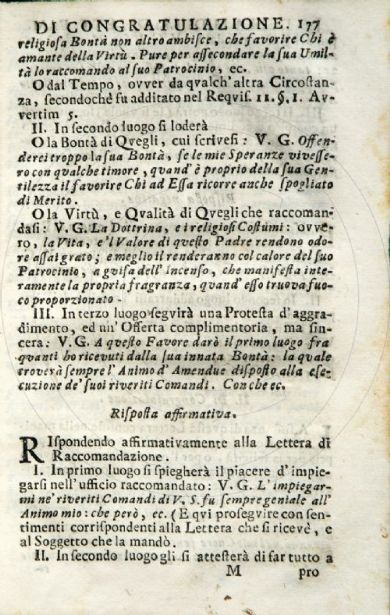 DI CONGRATULAZIONE. 177
religiosa Bontà non altro ambisce, che favorire Chi è
amante della Virtù. Pure per assecondare la sua Umil-
tà lo raccomando al suo Patrocinio, ec.
O dal Tempo, ovver da qvalch' altra Circostan-
za, secondochè fu additato nel Reqvis. 11. §. 1. Av-
vertim 5.
II. In secondo luogo si loderà
O la Bontà di Qvegli, cui scrivesi: V. G. Offen-
derei troppo la sua Bontà, se le mie Speranze vivesse-
ro con qualche timore, quand' è proprio della sua Gen-
tilezza il favorire Chi ad Essa ricorre anche spogliato
di Merito.
O la Virtù, e Qvalità di Qvegli che raccoman-
dasi: V. G. La Dottrina, e i religiosi Costumi: ovve-
ro, la Vita, e 'l Valore di questo Padre rendono odo-
re assai grato; e meglio il renderanno col calore del suo
Patrocinio, a guisa dell' incenso, che manifesta inte-
ramente la propria fragranza, quand' esso truova fuo-
co proporzionato.
III. In terzo luogo segvirà una Protesta d' aggra-
dimento, ed un' Offerta complimentoria, ma sin-
cera: V. G. A questo Favore darò il primo luogo fra
quanti ho ricevuti dalla sua innata Bontà: la quale
troverà sempre l' Animo d' Amendue disposto alla ese-
cuzione de' suoi riveriti Comandi. Con che ec.
Risposta affirmativa.
RIspondendo affirmativamente alla Lettera di
Raccomandazione.
I. In primo luogo si spiegherà il piacere d' impie-
garsi nell' ufficio raccomandato: V. G. L' impiegar-
mi ne' riveriti Comandi di V. S. fu sempre geniale all'
Animo mio: che però, ec. (E qvi prosegvire con sen-
timenti corrispondenti alla Lettera che si ricevè, e
al Soggetto che la mandò.
II. In secondo luogo gli si attesterà di far tutto a
M pro